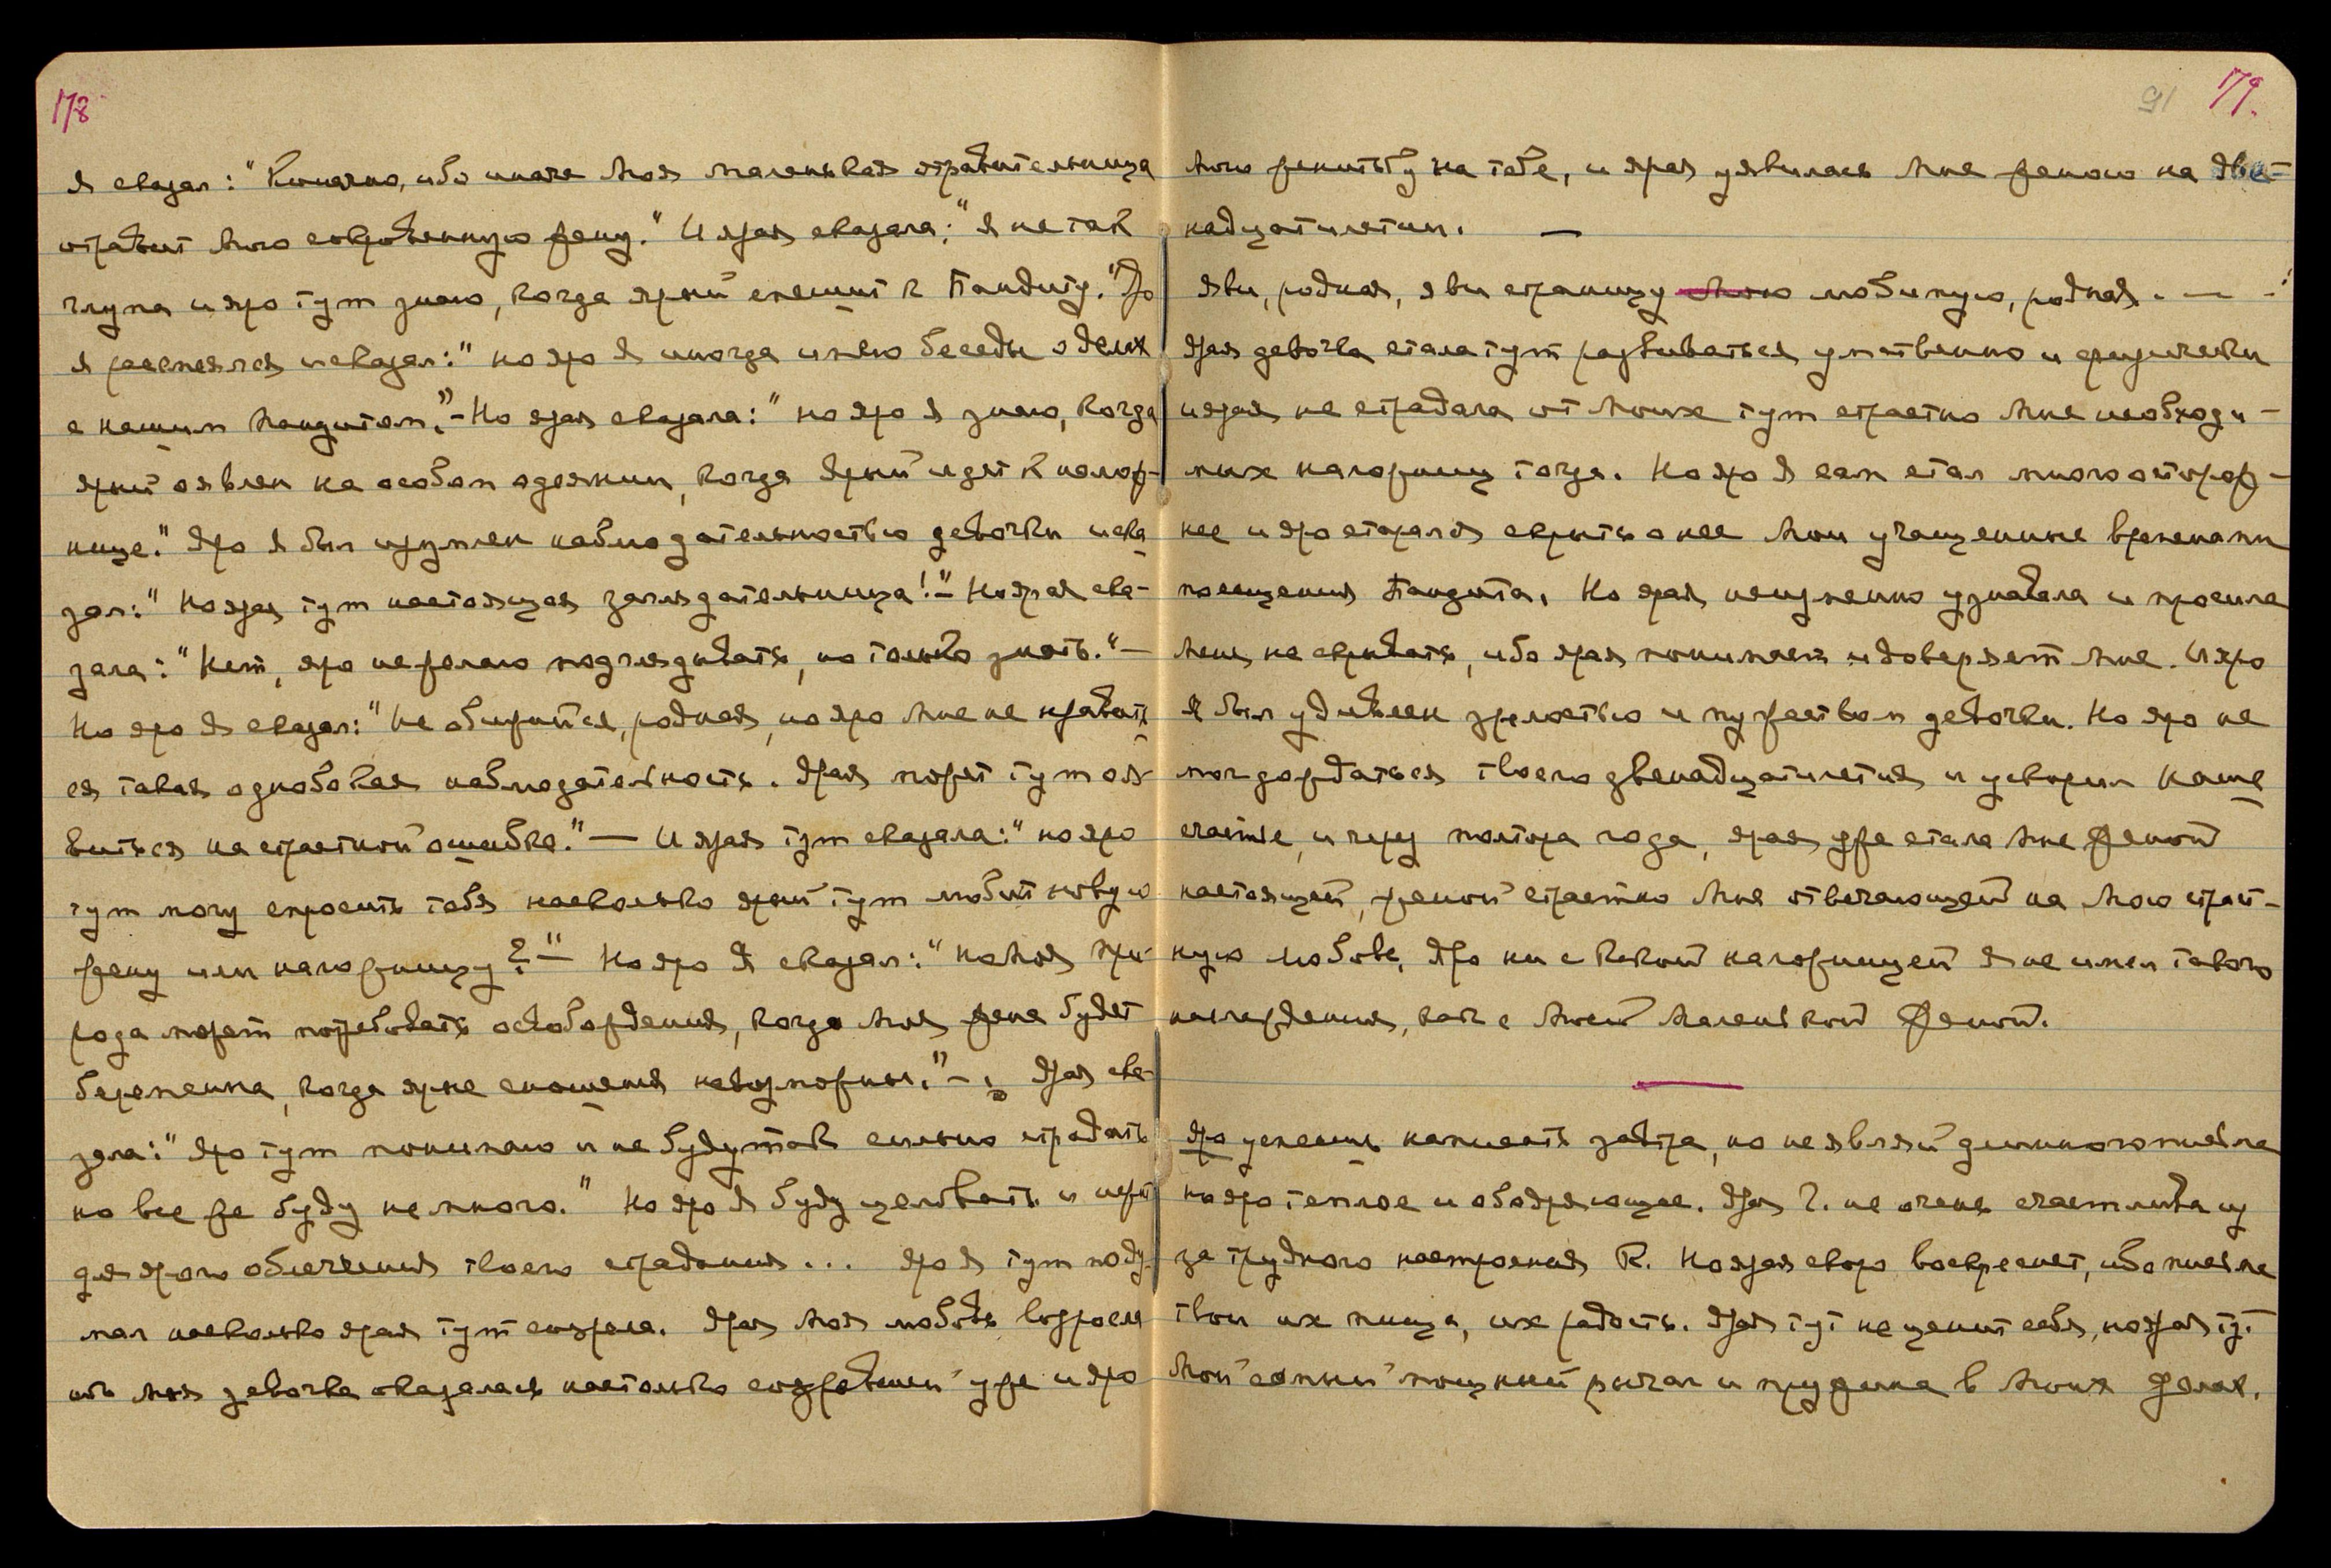 178
Я сказал: "Конечно, ибо иначе Моя маленькая отравительница
отравит Мою сокровенную жену." И ярая сказала: "Я не так
глупа и яро тут знаю, когда ярый спешит к Пандиту." Яро
Я рассмеялся и сказал: "но яро Я иногда имею беседы о делах
с нашим Пандитом."- Но ярая сказала: "но яро Я знаю, когда
ярый оявлен на особом одеянии, когда ярый идет к налож-
нице." Яро Я был изумлен наблюдательностью девочки и ска
зал: "Но ярая тут настоящая заглядательница!"- Но ярая ска-
зала: "Нет, яро не желаю подглядывать, но только знать."-
Но яро Я сказал: "Не обижайся, родная, но яро Мне не нравит
ся такая однобокая наблюдательность. Ярая может тут оя-
виться на страстной ошибке." — И ярая тут сказала: "но яро
тут могу спросить тебя насколько ярый тут любит новую
жену или наложницу?"- Но яро Я сказал: "но Моя при-
рода может потребовать освобождения, когда Моя жена будет
беременна, когда ярые сношения невозможны."-. Ярая ска-
зала: "Яро тут понимаю и не буду так сильно страдать
но все же буду немного." Но яро Я буду целовать и неж
для ярого облегчения твоего страдания... Яро Я тут поду-
мал насколько ярая тут созрела. Ярая Моя любовь возросла
ибо Моя девочка оказалась настолько созревшей уже и яро
91 179.
Мою женитьбу на тебе, и ярая уявилась Мне женою на две-
надцатилетии. —
Яви, родная, яви страницу Мою любимую, родная. —
Ярая девочка стала тут развиваться умственно и физически
и ярая не страдала от Моих тут страстно Мне необходи-
мых наложниц тогда. Но яро Я сам стал много осторож-
нее и яро старался скрыть от нее Мои учащенные временами
посещения Пандита. Но ярая неизменно узнавала и просила
Меня не скрывать, ибо ярая понимает и доверяет Мне. И яро
Я был удивлен зрелостью и мужеством девочки. Но яро не
мог дождаться твоего двенадцатилетия и ускорил наше
счастье, и через полтора года, ярая уже стала Мне женой
настоящей, женой страстно Мне отвечающей на Мою страст-
ную любовь. Яро ни с какой наложницей Я не имел такого
наслаждения, как с Моей Маленькой Женой.
Яро успеешь написать завтра, но не являй длинного письма
но яро теплое и ободряющее. Ярая Г. не очень счастлива из
за трудного настроения К. Но ярая скоро воскреснет, ибо письма
твои их пища, их радость. Ярая тут не ценит себя, но ярая тут
Мой самый мощный рычаг и пружина в Моих делах.